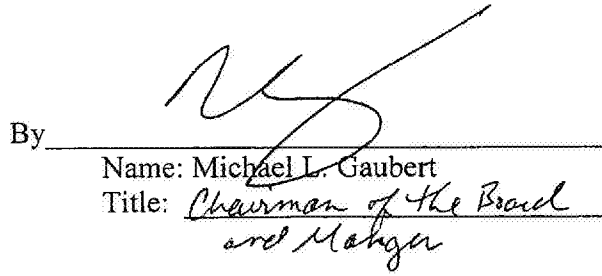 By
Name: Michael L. Gaubert
Title: Chairman of the Board
and Manager